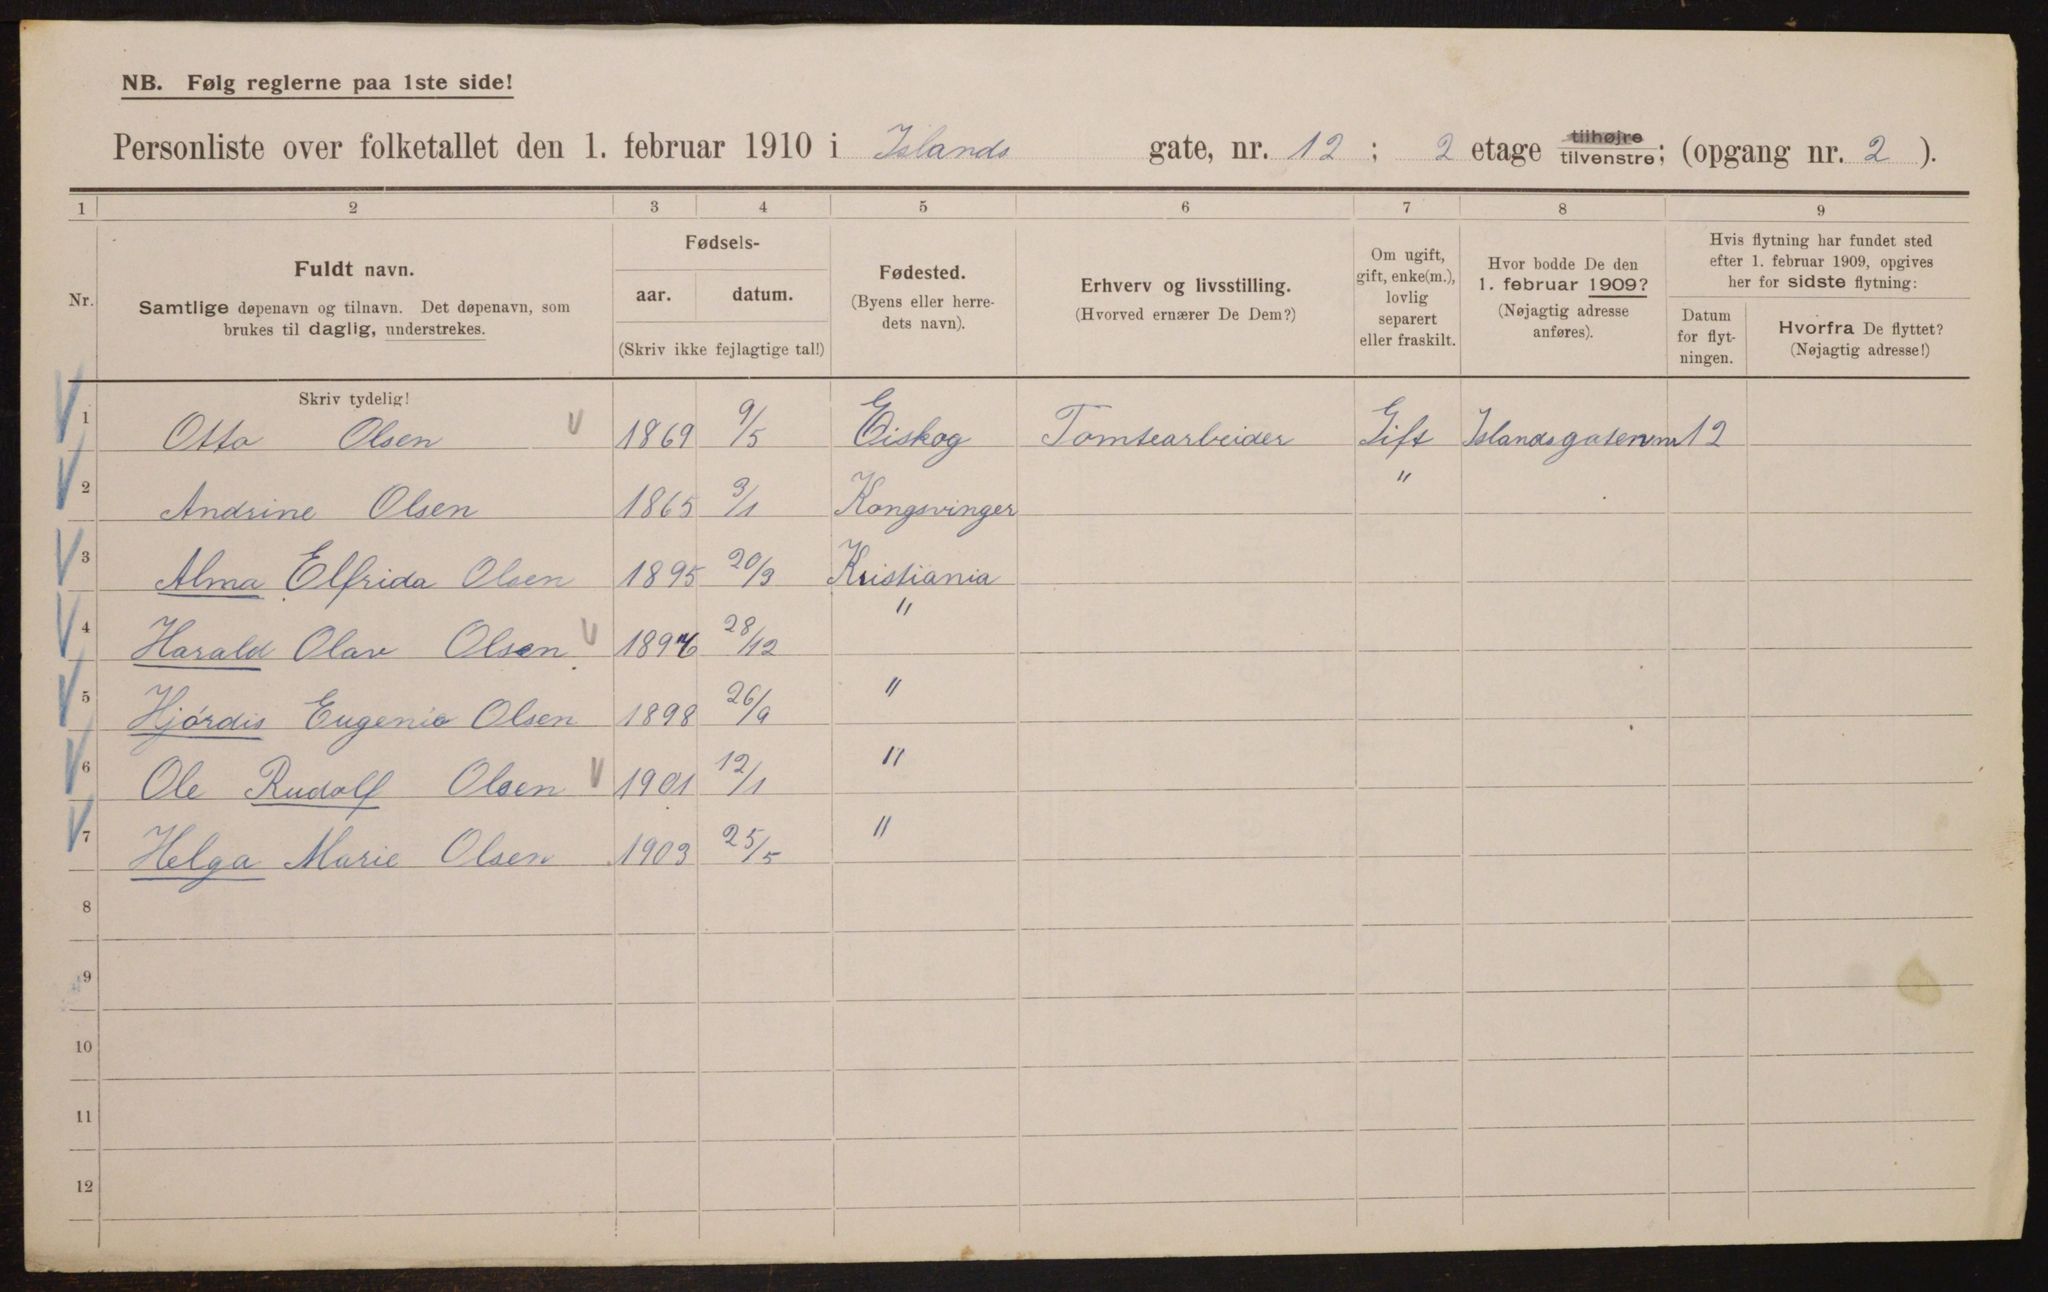 NB. Følg reglerne paa 1ste side!
Personliste over folketallet den 1. februar 1910 i Islands gate, nr. 12 ; 2 etage tilhøjre tilvenstre; (opgang nr. 2 ).
1 2 3 4 5 6 7 8 9
Nr.
Fuldt navn.
Samtlige døpenavn og tilnavn. Det døpenavn, som
brukes til daglig, understrekes.
Skriv tydelig!
Fødsels-
aar. datum.
(Skriv ikke fejlagtige tal!)
Fødested.
(Byens eller herre-
dets navn).
Erhverv og livsstilling.
(Hvorved ernærer De Dem?)
Om ugift,
gift, enke(m.),
lovlig
separert
eller fraskilt.
Hvor bodde De den
1. februar 1909?
(Nøjagtig adresse
anføres).
Hvis flytning har fundet sted
efter 1. februar 1909, opgives
her for sidste flytning:
Datum
for flyt-
ningen.
Hvorfra De flyttet?
(Nøjagtig adresse!)
1 Otto Olsen 1869 9/5 Eiskog Tomtearbeider Gift Islandsgaten nr 12
2 Andrine Olsen 1865 3/1 Kongsvinger "
3 Alma Elfrida Olsen 1895 20/3 Kristiania
4 Harald Olav Olsen 28/12 "
5 Hjórdis Eugenie Olsen 1898 26/9 "
6 Ole Rudolf Olsen 1901 12/1 "
7 Helga Marie Olsen 1903 25/5 "
8
9
10
11
12